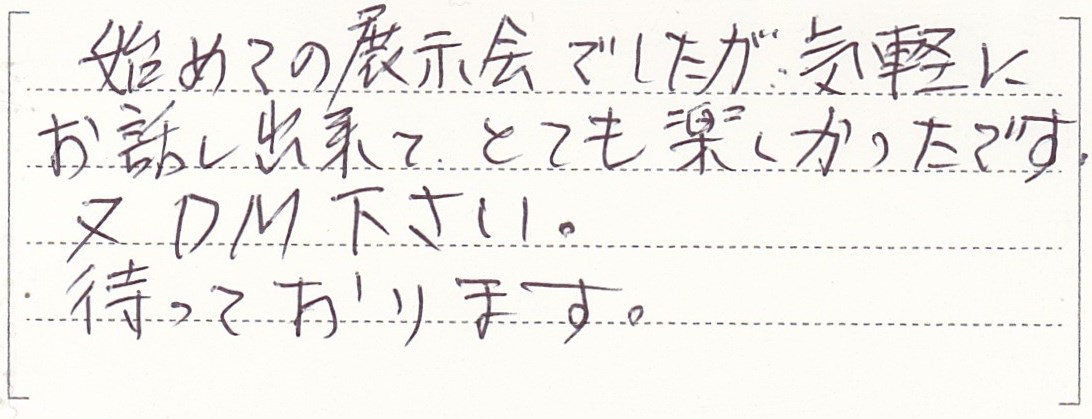 始めての展示会でしたが、気軽に
お話し出来て、とても楽しかったです。
又DM下さい。
待っております。